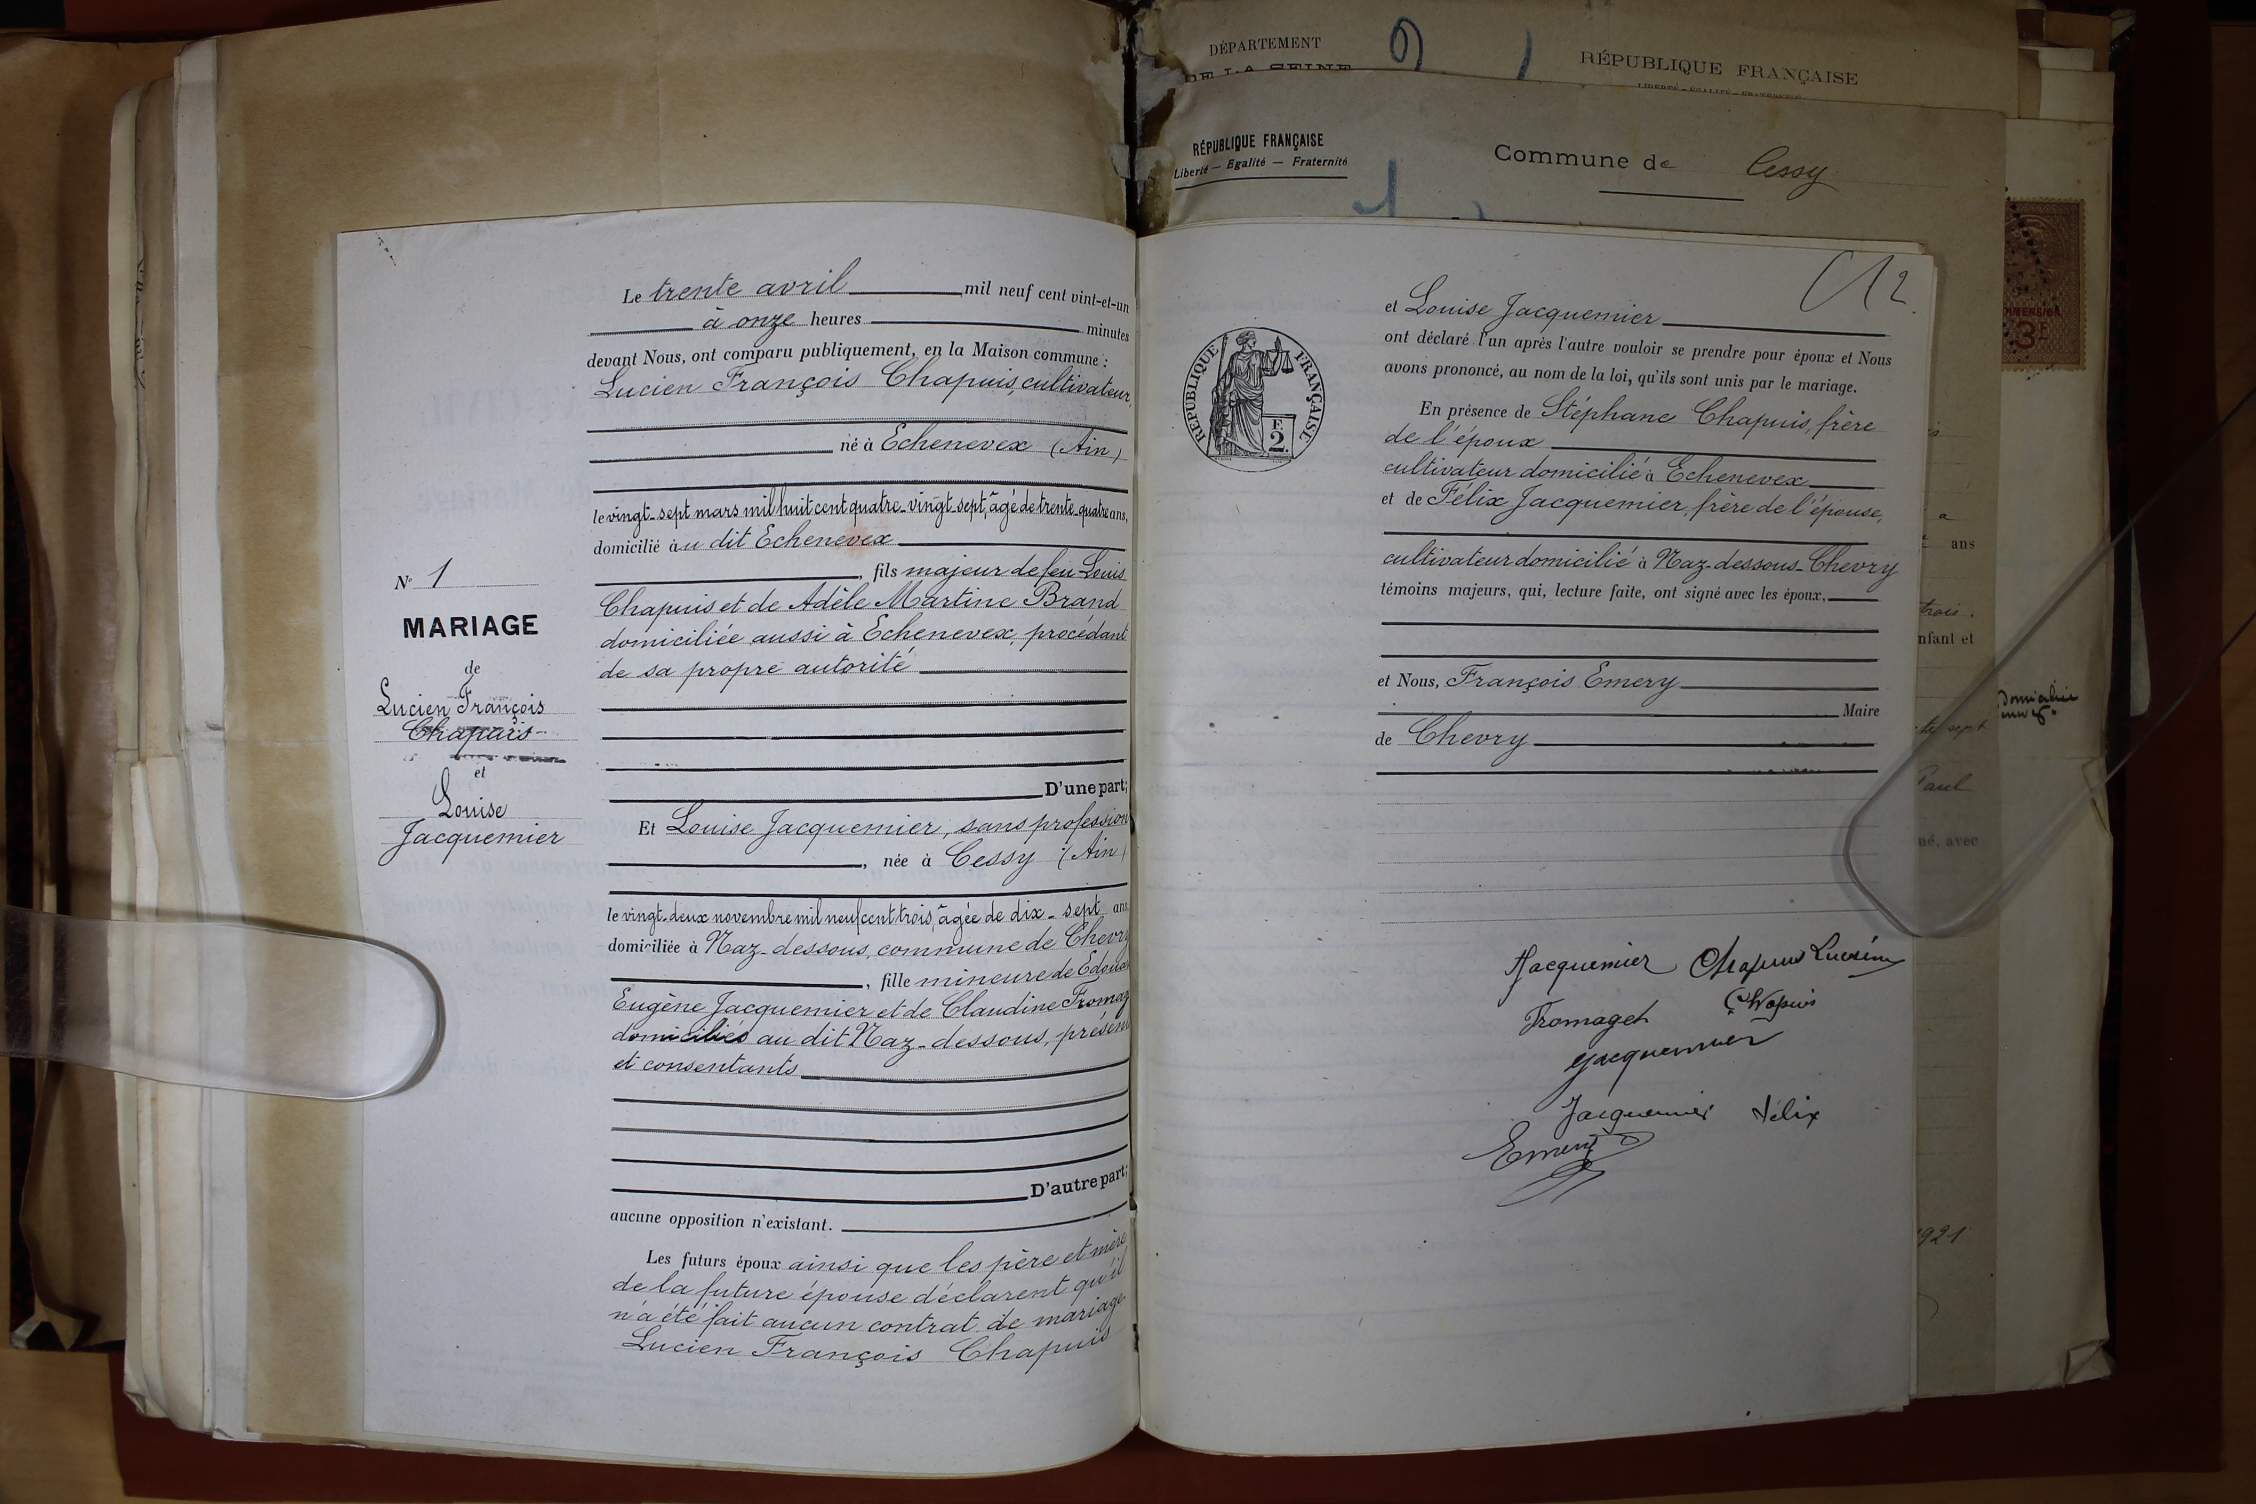 N° 1
MARIAGE
de
Lucien François
Chapuis
et
Louise
Jacquemier
Le trente avril mil neuf cent vint-et-un
à onze heures minutes
devant Nous, ont comparu publiquement, en la Maison commune :
Lucien François Chapuis, cultivateur,
né à Echenevex (Ain)
le vingt-sept mars mil huit cent quatre-vingt-sept, âgé de trente-quatre ans,
domicilié au dit Echenevex
, fils majeur de feu Louis
Chapuis et de Adèle Martine Brand
domiciliée aussi à Echenevex, procédant
de sa propre autorité
D'une part;
Et Louise Jacquemier, sans profession
, née à Cessy (Ain)
le vingt-deux novembre mil neuf cent trois, âgée de dix-sept ans
domiciliée à Naz-dessous, commune de Chevry
, fille mineure de
Eugène Jacquemier et de Claudine
domiciliés au dit Naz-dessous,
et consentants
D'autre part;
aucune opposition n'existant.
Les futurs époux ainsi que les père et mère
de la future épouse déclarent qu'il
n'a été fait aucun contrat de mariage
Lucien François Chapuis
DÉPARTEMENT
DE LA SEINE
RÉPUBLIQUE FRANÇAISE
LIBERTÉ - ÉGALITÉ - FRATERNITÉ
RÉPUBLIQUE FRANÇAISE
Liberté — Egalité — Fraternité
Commune de Cessy
12
RÉPUBLIQUE FRANÇAISE
F.
2.
et Louise Jacquemier
ont déclaré l'un après l'autre vouloir se prendre pour époux et Nous
avons prononcé, au nom de la loi, qu'ils sont unis par le mariage.
En présence de Stéphane Chapuis, frère
de l'époux
cultivateur domicilié à Echenevex
et de Félix Jacquemier, frère de l'épouse,
cultivateur domicilié à Naz-dessous-Chevry
témoins majeurs, qui, lecture faite, ont signé avec les époux,
et Nous, François Emery
Maire
de Chevry
Jacquemier Chapuis Lucien
Fromaget Chapuis
Jacquemier
Jacquemier Félix
Emery
3F
a
ans
trois.
nfant et
sept
Paul
né, avec
1921